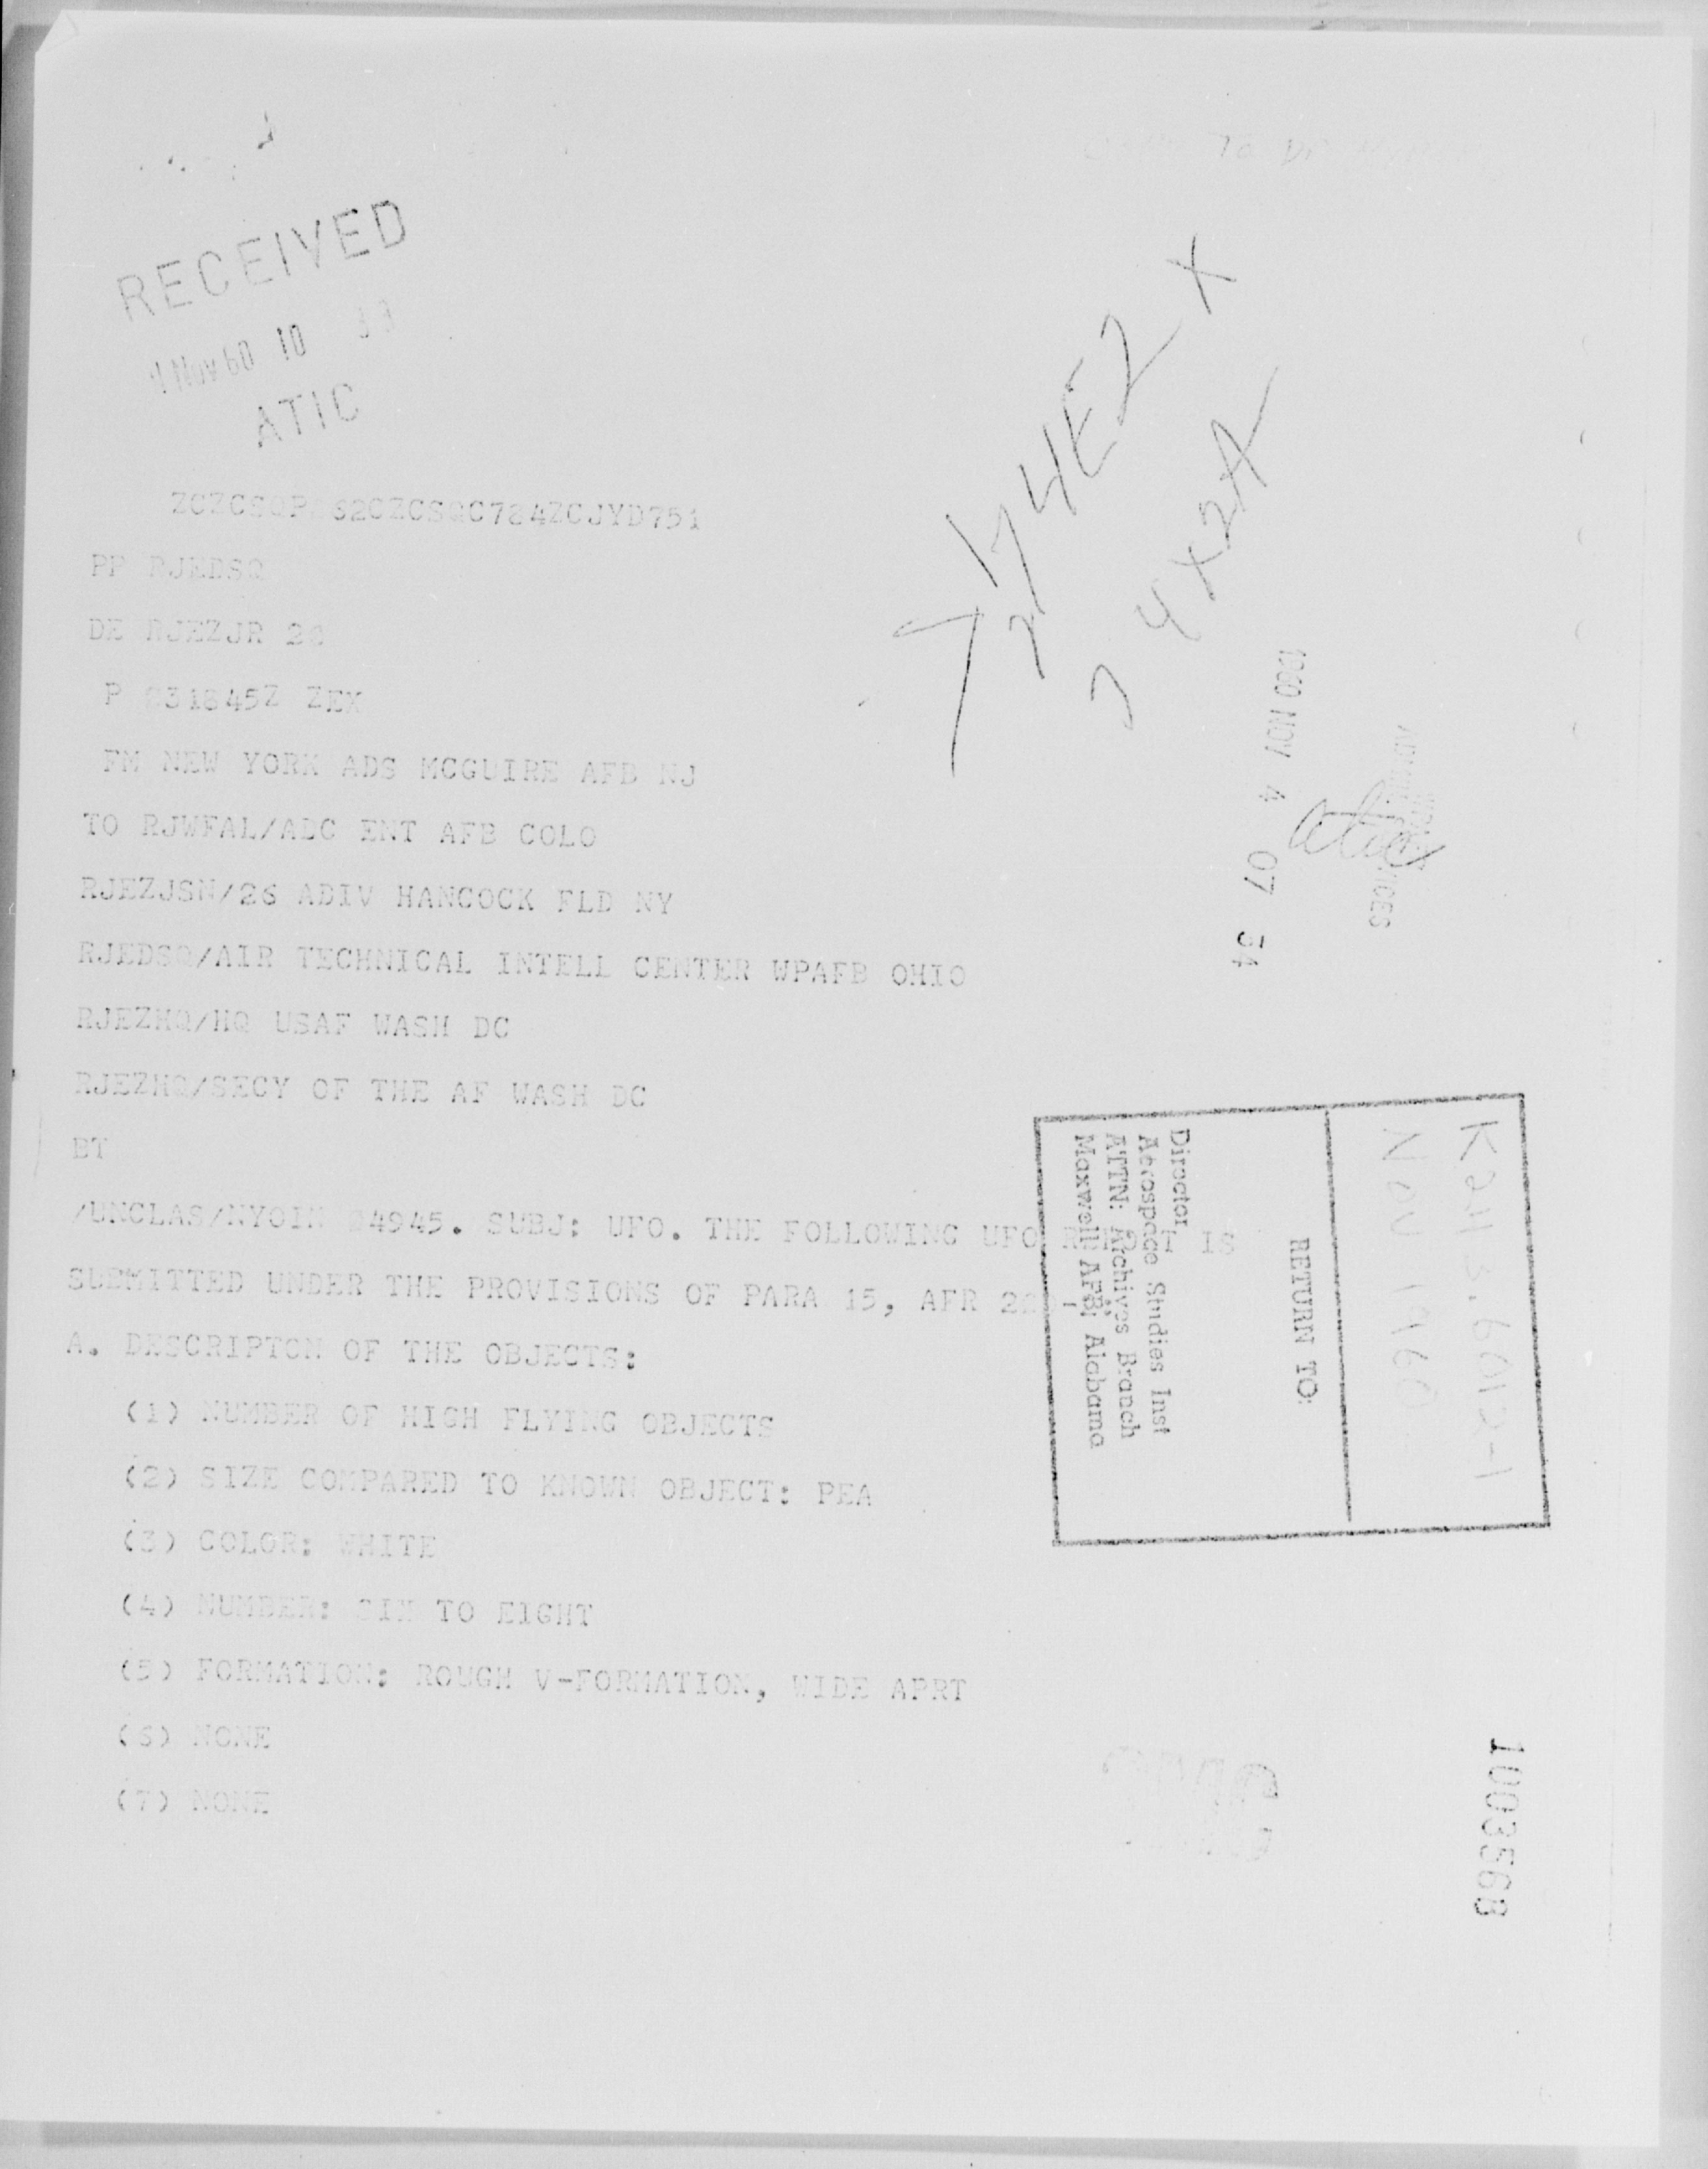 RECEIVED
NOV 60 10
ATIC
PP RJEDSQ
DE RJEZJR
FM NEW YORK ADS MCGUIRE AFB NJ
TO RJWFAL/ADC ENT AFB COLO
RJEZJSN/26 ADIV HANCOCK FLD NY
RJEDSQ/AIR TECHNICAL INTELL CENTER WPAFB OHIO
RJEZHQ/HQ USAF WASH DC
RJEZHQ/SECY OF THE AF WASH DC
BT
/UNCLAS/NYOIN 4945. SUBJ: UFO. THE FOLLOWING UFO REPORT IS
SUBMITTED UNDER THE PROVISIONS OF PARA 15, AFR
A. DESCRIPTON OF THE OBJECTS:
(1) NUMBER OF HIGH FLYING OBJECTS
(2) SIZE COMPARED TO KNOWN OBJECT: PEA
(3) COLOR: WHITE
(4) NUMBER: SIX TO EIGHT
(5) FORMATION: ROUGH V-FORMATION, WIDE APRT
(6) NONE
(7) NONE
4E2 X
4X2A
1960 NOV 4 07 54
K243.6012-1
NOV 1960
RETURN TO:
Director
Aerospace Studies Inst
ATTN: Archives Branch
Maxwell AFB, Alabama
1003568